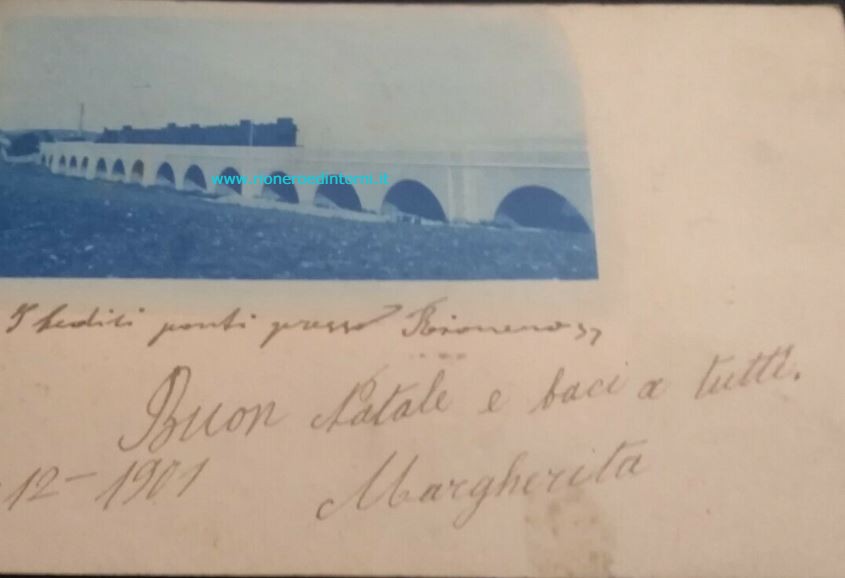 www.rioneroedintorni.it
I tredici ponti presso Rionero
Buon Natale e baci a tutti.
-12-1901
Margherita